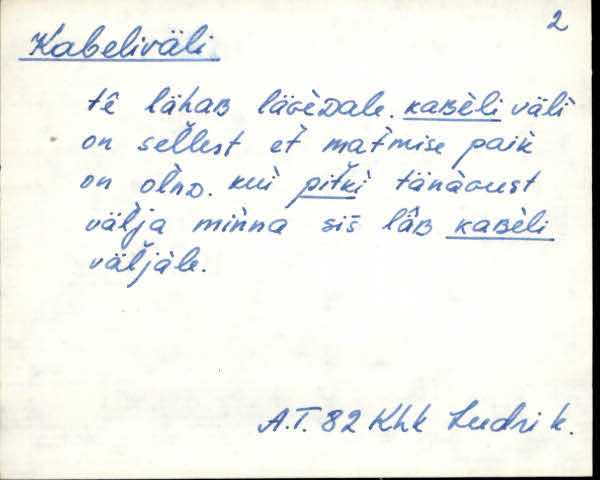 2
Kabeliväli
tê lähaʙ läɞ̀eᴅale. kaʙèli väli
on sellest et̀ mat̀mise paik̀
on olnᴅ. kui pit̀ki tänàvust
välja minna sis̄ lâʙ kaʙèli
väljàle.
A.T. 82 Khk Ludri k.